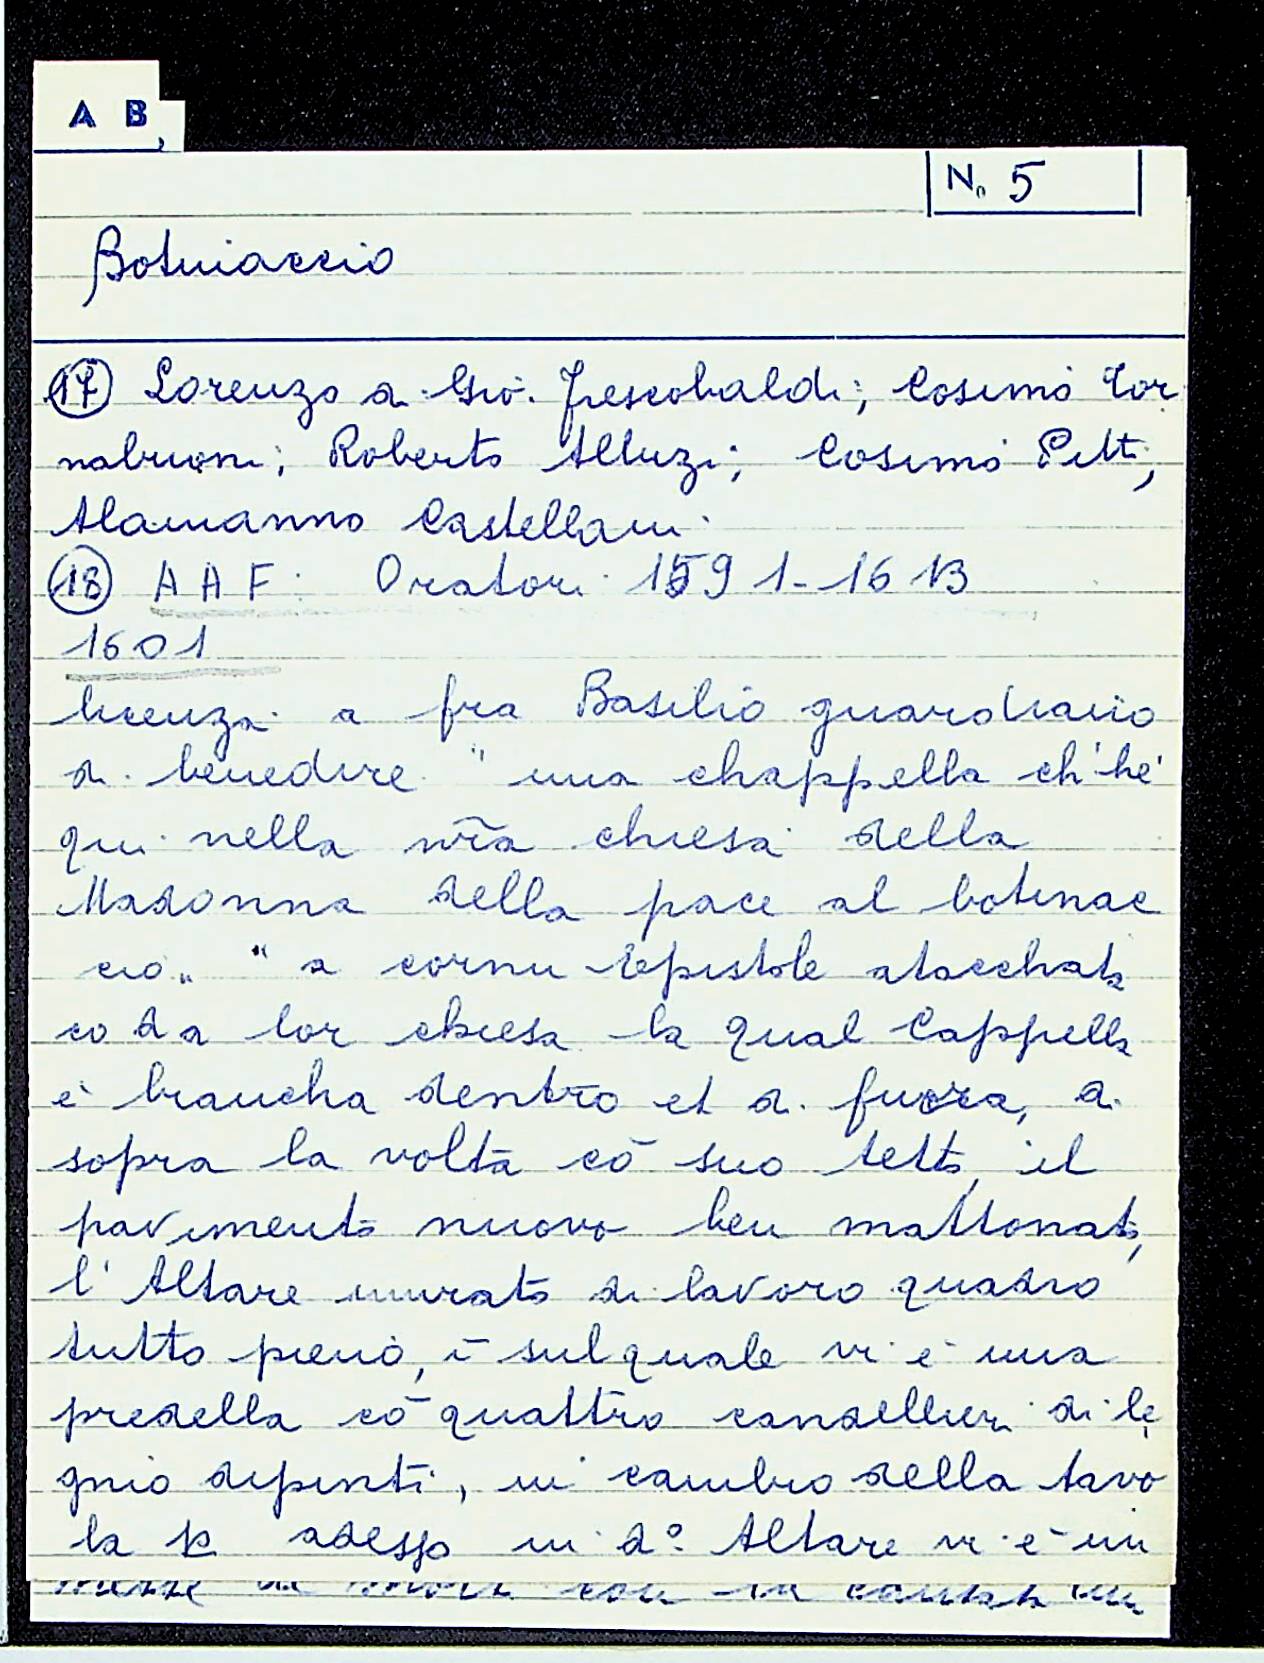 A B
N. 5
Botinaccio
(17) Lorenzo di Gio. Frescobaldi; Cosimo Tor
nabuoni; Roberto Alluzi; Cosimo Pitti,
Alamanno Castellani.
(18) A A F. Oratori 1591-1613
1601
licenza a fra Basilio guardiano
di benedire "una chappella ch'he'
qui nella nr̃a chiesa della
Madonna della pace al botinac
cio" "a cornu Epistole atacchata
co da lor chiesa la qual Cappella
è biancha dentro et di fuora, di
sopra la volta cō suo tetto, il
pavimento nuovo ben mattonato,
l'Altare murato di lavoro quadro
tutto pieno, ī sul quale vi è una
predella cō quattro candellieri di le
gnio dipinti, in cambio della tavo
la p adesso in d° Altare vi è un